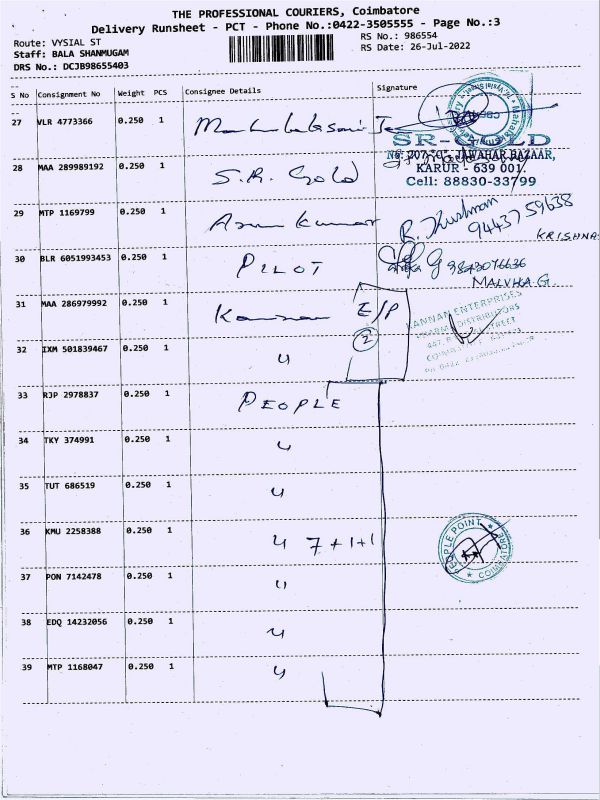 THE PROFESSIONAL COURIERS, Coimbatore
Delivery Runsheet - PCT - Phone No.:0422-3505555 - Page No.:3
Route: VYSIAL ST
Staff: BALA SHANMUGAM
DRS No.: DCJB98655403
RS No.: 986554
RS Date: 26-Jul-2022
S No Consignment No Weight PCS Consignee Details Signature
27 VLR 4773366 0.250 1
SR-GOLD
JAWAHAR BAZAAR,
KARUR - 639 001.
Cell: 88830-33799
28 MAA 289989192 0.250 1 S.R. Gold
29 MTP 1169799 0.250 1 Arun Kumar R. Kushman 9443759638
KRISHNA
30 BLR 6051993453 0.250 1 PILOT 9843076636
MALVIKA G.
31 MAA 286979992 0.250 1 Kannan E/P
KANNAN ENTERPRISES
DISTRIBUTORS
STREET
32 IXM 501839467 0.250 1 ч 2
33 RJP 2978837 0.250 1 PEOPLE
34 TKY 374991 0.250 1 ч
35 TUT 686519 0.250 1 ч
36 KMU 2258388 0.250 1 ч 7+1+1
PEOPLE POINT
COIMBATORE
37 PON 7142478 0.250 1 ч
38 EDQ 14232056 0.250 1 ч
39 MTP 1168047 0.250 1 ч